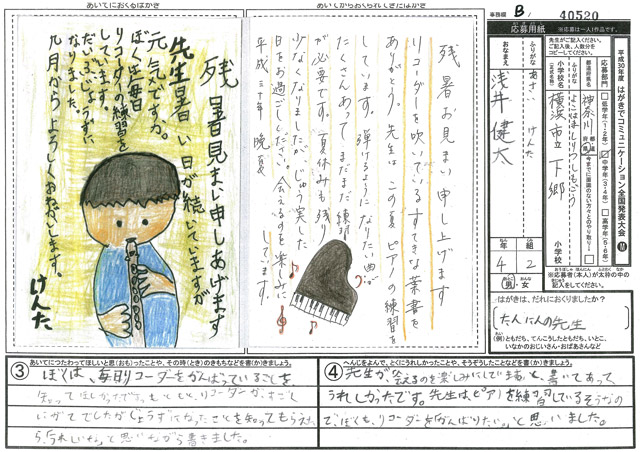 あいてにおくるはがき
残暑見まい申しあげます
先生暑い日が続いていますが
元気ですか。
ぼくは毎日
リコーダーの練習を
しています。
だいぶじょうずに
なりました。
九月からよろしくおねがいします。
けんた
あいてからおくられてきたはがき
残暑お見まい申し上げます
リコーダーを吹いているすてきな葉書を
ありがとう。先生は、この夏ピアノの練習を
しています。弾けるようになりたい曲が
たくさんあって、まだまだ練習
が必要です。夏休みも残り
少なくなりましたが、じゅう実した
日をお過ごしください。会えるのを楽しみに
しています。
平成三十年 晩夏
事務欄 B.
40520
応募用紙
※応募は一人1作品です。
先生がご記入ください。
ご記入後、人数分を
コピーしてください。
平成30年度 はがきでコミュニケーション全国発表大会
応募部門
低学年(1・2年)
中学年(3・4年)
高学年(5・6年)
都道府県名
神奈川
都道府県
小学校名
よこはましりつしもごう
横浜市立 下郷
小学校
ふりがな
あさい けんた
おなまえ
浅井 健太
年 組
4 2
男・女
※応募者(本人)が太枠の中の
記入をしてください。
はがきは、だれにおくりましたか?
たんにんの先生
(例)ともだち、てんこうしたともだち、いとこ、
いなかのおじいさん・おばあさんなど
③ あいてにつたわってほしいと思(おも)ったことや、その時(とき)のきもちなどを書(か)きましょう。
ぼくは、毎日リコーダーをがんばっていることを
知ってほしかったです。もともとリコーダーがすごく
にがてでしたがじょうずになったことを知ってもらえた
ら、うれしいな。と思いながら書きました。
④ へんじをよんで、とくにうれしかったことや、そうぞうしたことなどを書(か)きましょう。
先生が、会えるのを楽しみにしていますと、書いてあって
うれしかったです。先生はピアノを練習しているそうなの
で、ぼくも、リコーダーを「がんばりたい。」と思いました。